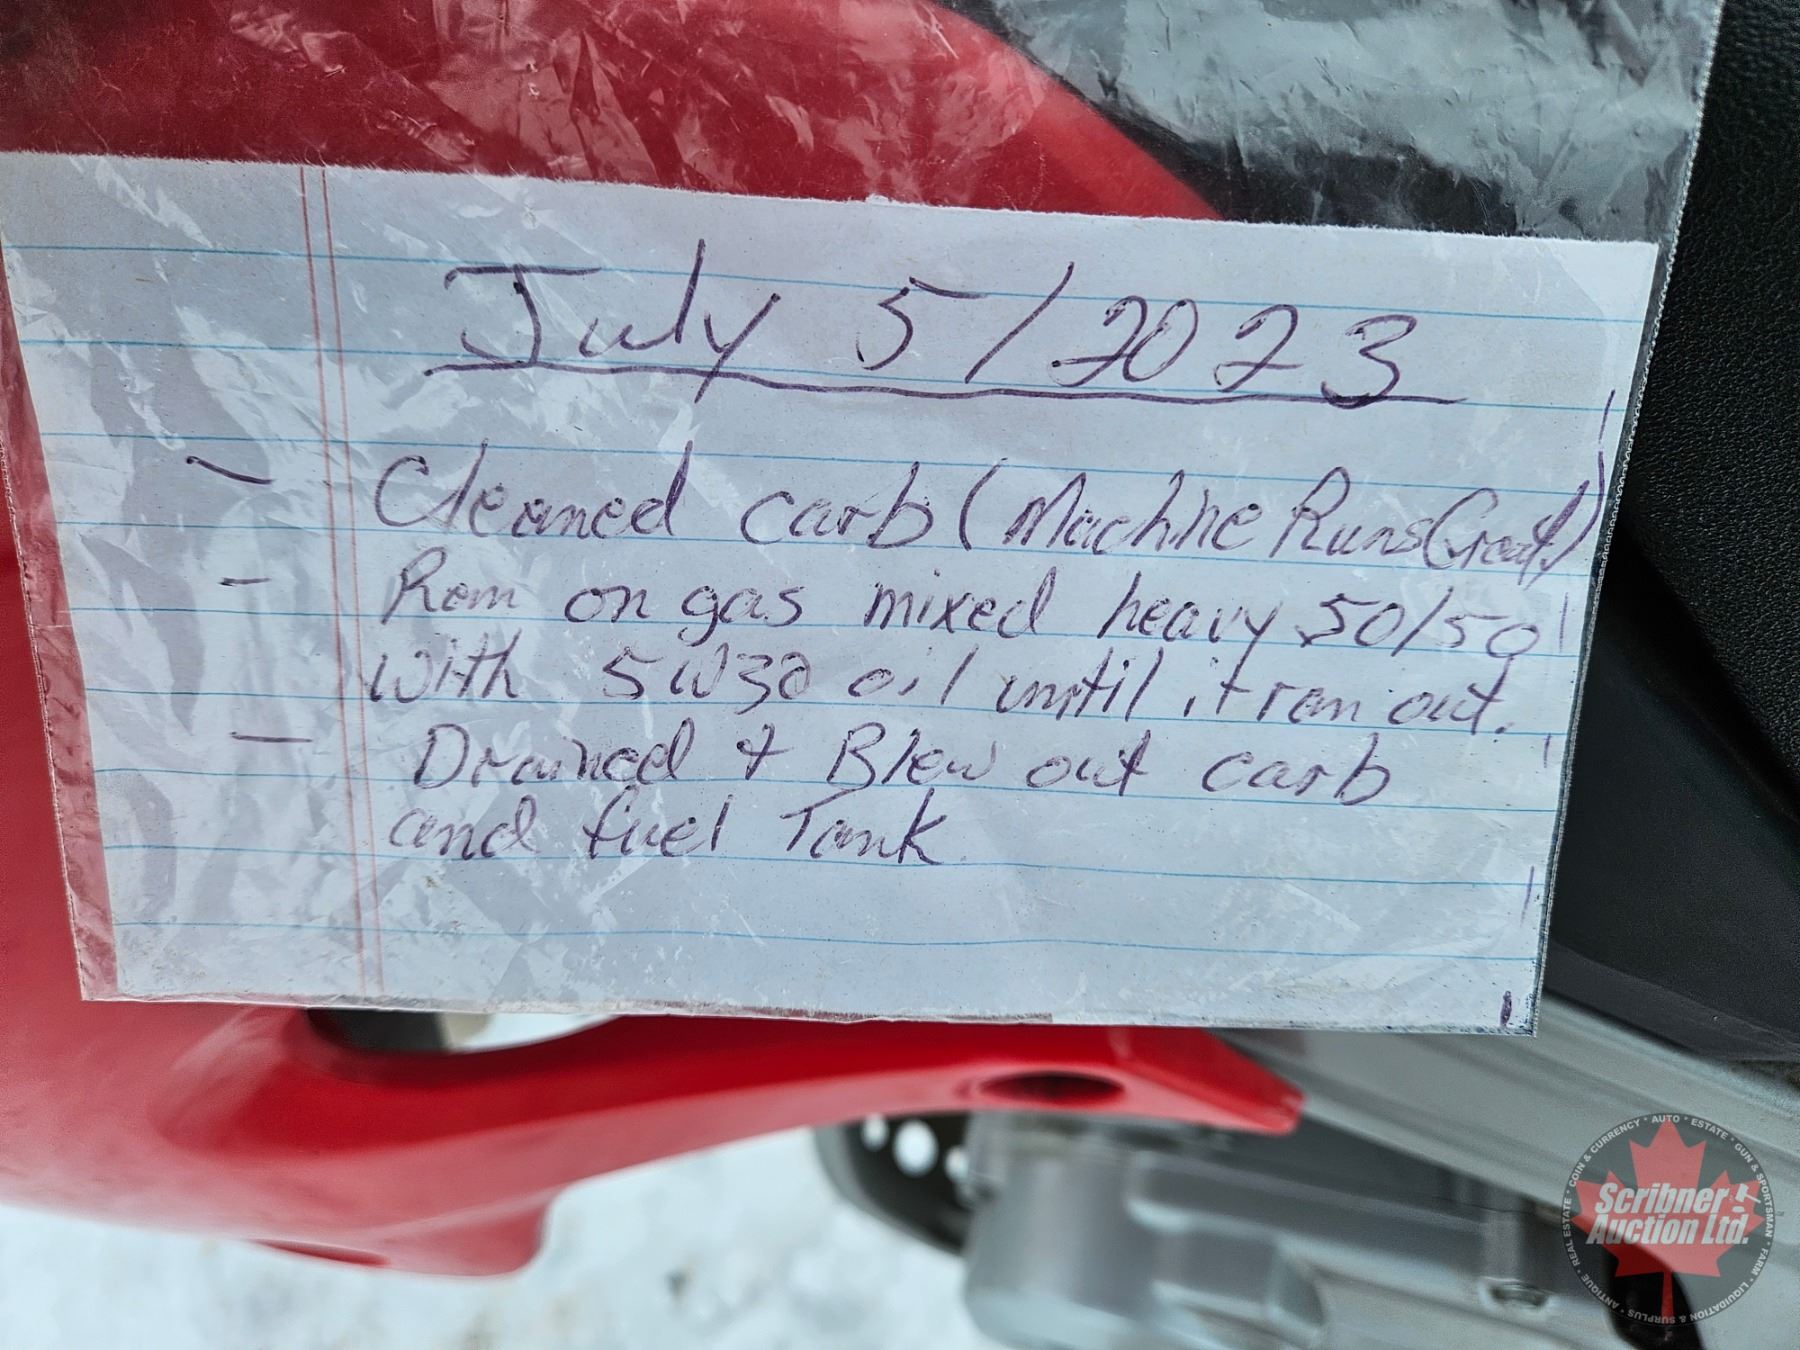 July 5/2023
- Cleaned carb (Machine Runs Great.)
- Ran on gas mixed heavy 50/50
with 5W30 oil until it ran out.
- Drained + Blew out carb
and fuel Tank
Scribner
Auction Ltd.
REAL ESTATE · COIN & CURRENCY · AUTO · ESTATE · GUN & SPORTSMAN · FARM · LIQUIDATION & SURPLUS · ANTIQUE